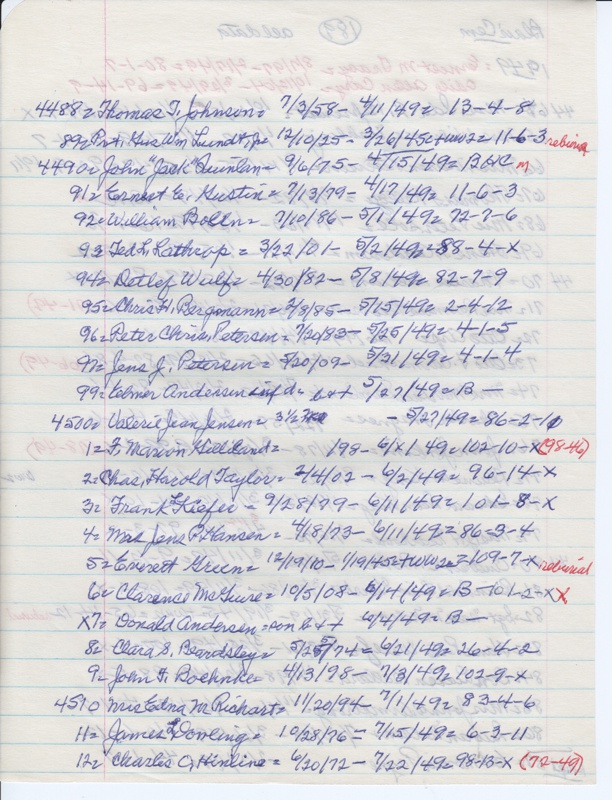 4488= Thomas T. Johnson= 7/3/58- 4/11/49= 13-4-8
89= Pvt. Gus Wm Lundt, Jr= 12/10/25- 3/26/45 + WW2= 11-6-3 reburial
4490= John "Jack" Quinlan- 9/6/75- 4/15/49= B
91= Ernest C. Gustin= 7/13/79- 4/17/49= 11-6-3
92= William Bolln= 7/10/86- 5/1/49= 72-7-6
93= Ted L. Lathrop= 3/22/01- 5/2/49= 88-4-X
94= Detlef Wulf= 4/30/82- 5/8/49= 82-7-9
95= Chris H. Bergmann= 2/8/85- 5/15/49= 2-4-12
96= Peter Chris Petersen= 7/20/83- 5/25/49= 4-1-5
97= Jens J. Petersen= 5/20/09- 5/31/49= 4-1-4
99= Elmer Andersen inf d= b++ 5/27/49= B-
4500= Valerie Jean Jensen= 3½ - 5/27/49= 86-2-10
1= F. Marion Gilliland= 198- 6/X1 49= 102-10-X (98-46)
2= Chas, Harold Taylor= 2/4/02- 6/2/49= 96-14-X
3= Frank Kiefer= 9/28/79- 6/11/49= 101-8-X
4= Mrs Jens P. Hansen= 4/18/73- 6/11/49= 86-3-4
5= Everett Green= 12/19/10- 1/19/45 + WW2= 109-7-X reburial
6= Clarence McGuire= 10/5/08- 6/14/49= B-101-2-XX
X7= Donald Andersen= son b++ 6/4/49= B-
8= Clara S. Beardsley= 5/25/74= 6/21/49= 26-4-2
9= John F. Boehnke= 4/13/98- 7/3/49= 102-9-X
4510 Mrs Edna M Richart= 11/20/94- 7/1/49= 83-4-6
11= James Dowling= 10/28/76- 7/15/49= 6-3-11
12= Charles C. Hinline= 6/20/72- 7/22/49= 98-13-X (72-49)